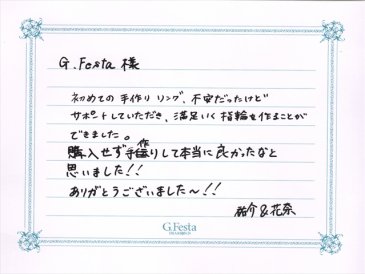 G.Festa 様
初めての手作りリング、不安だったけど
サポートしていただき、満足いく指輪を作ることが
できました。
購入せず手作りして本当に良かったなと
思いました!!
ありがとうございました〜!!
祐介&花奈
G.Festa